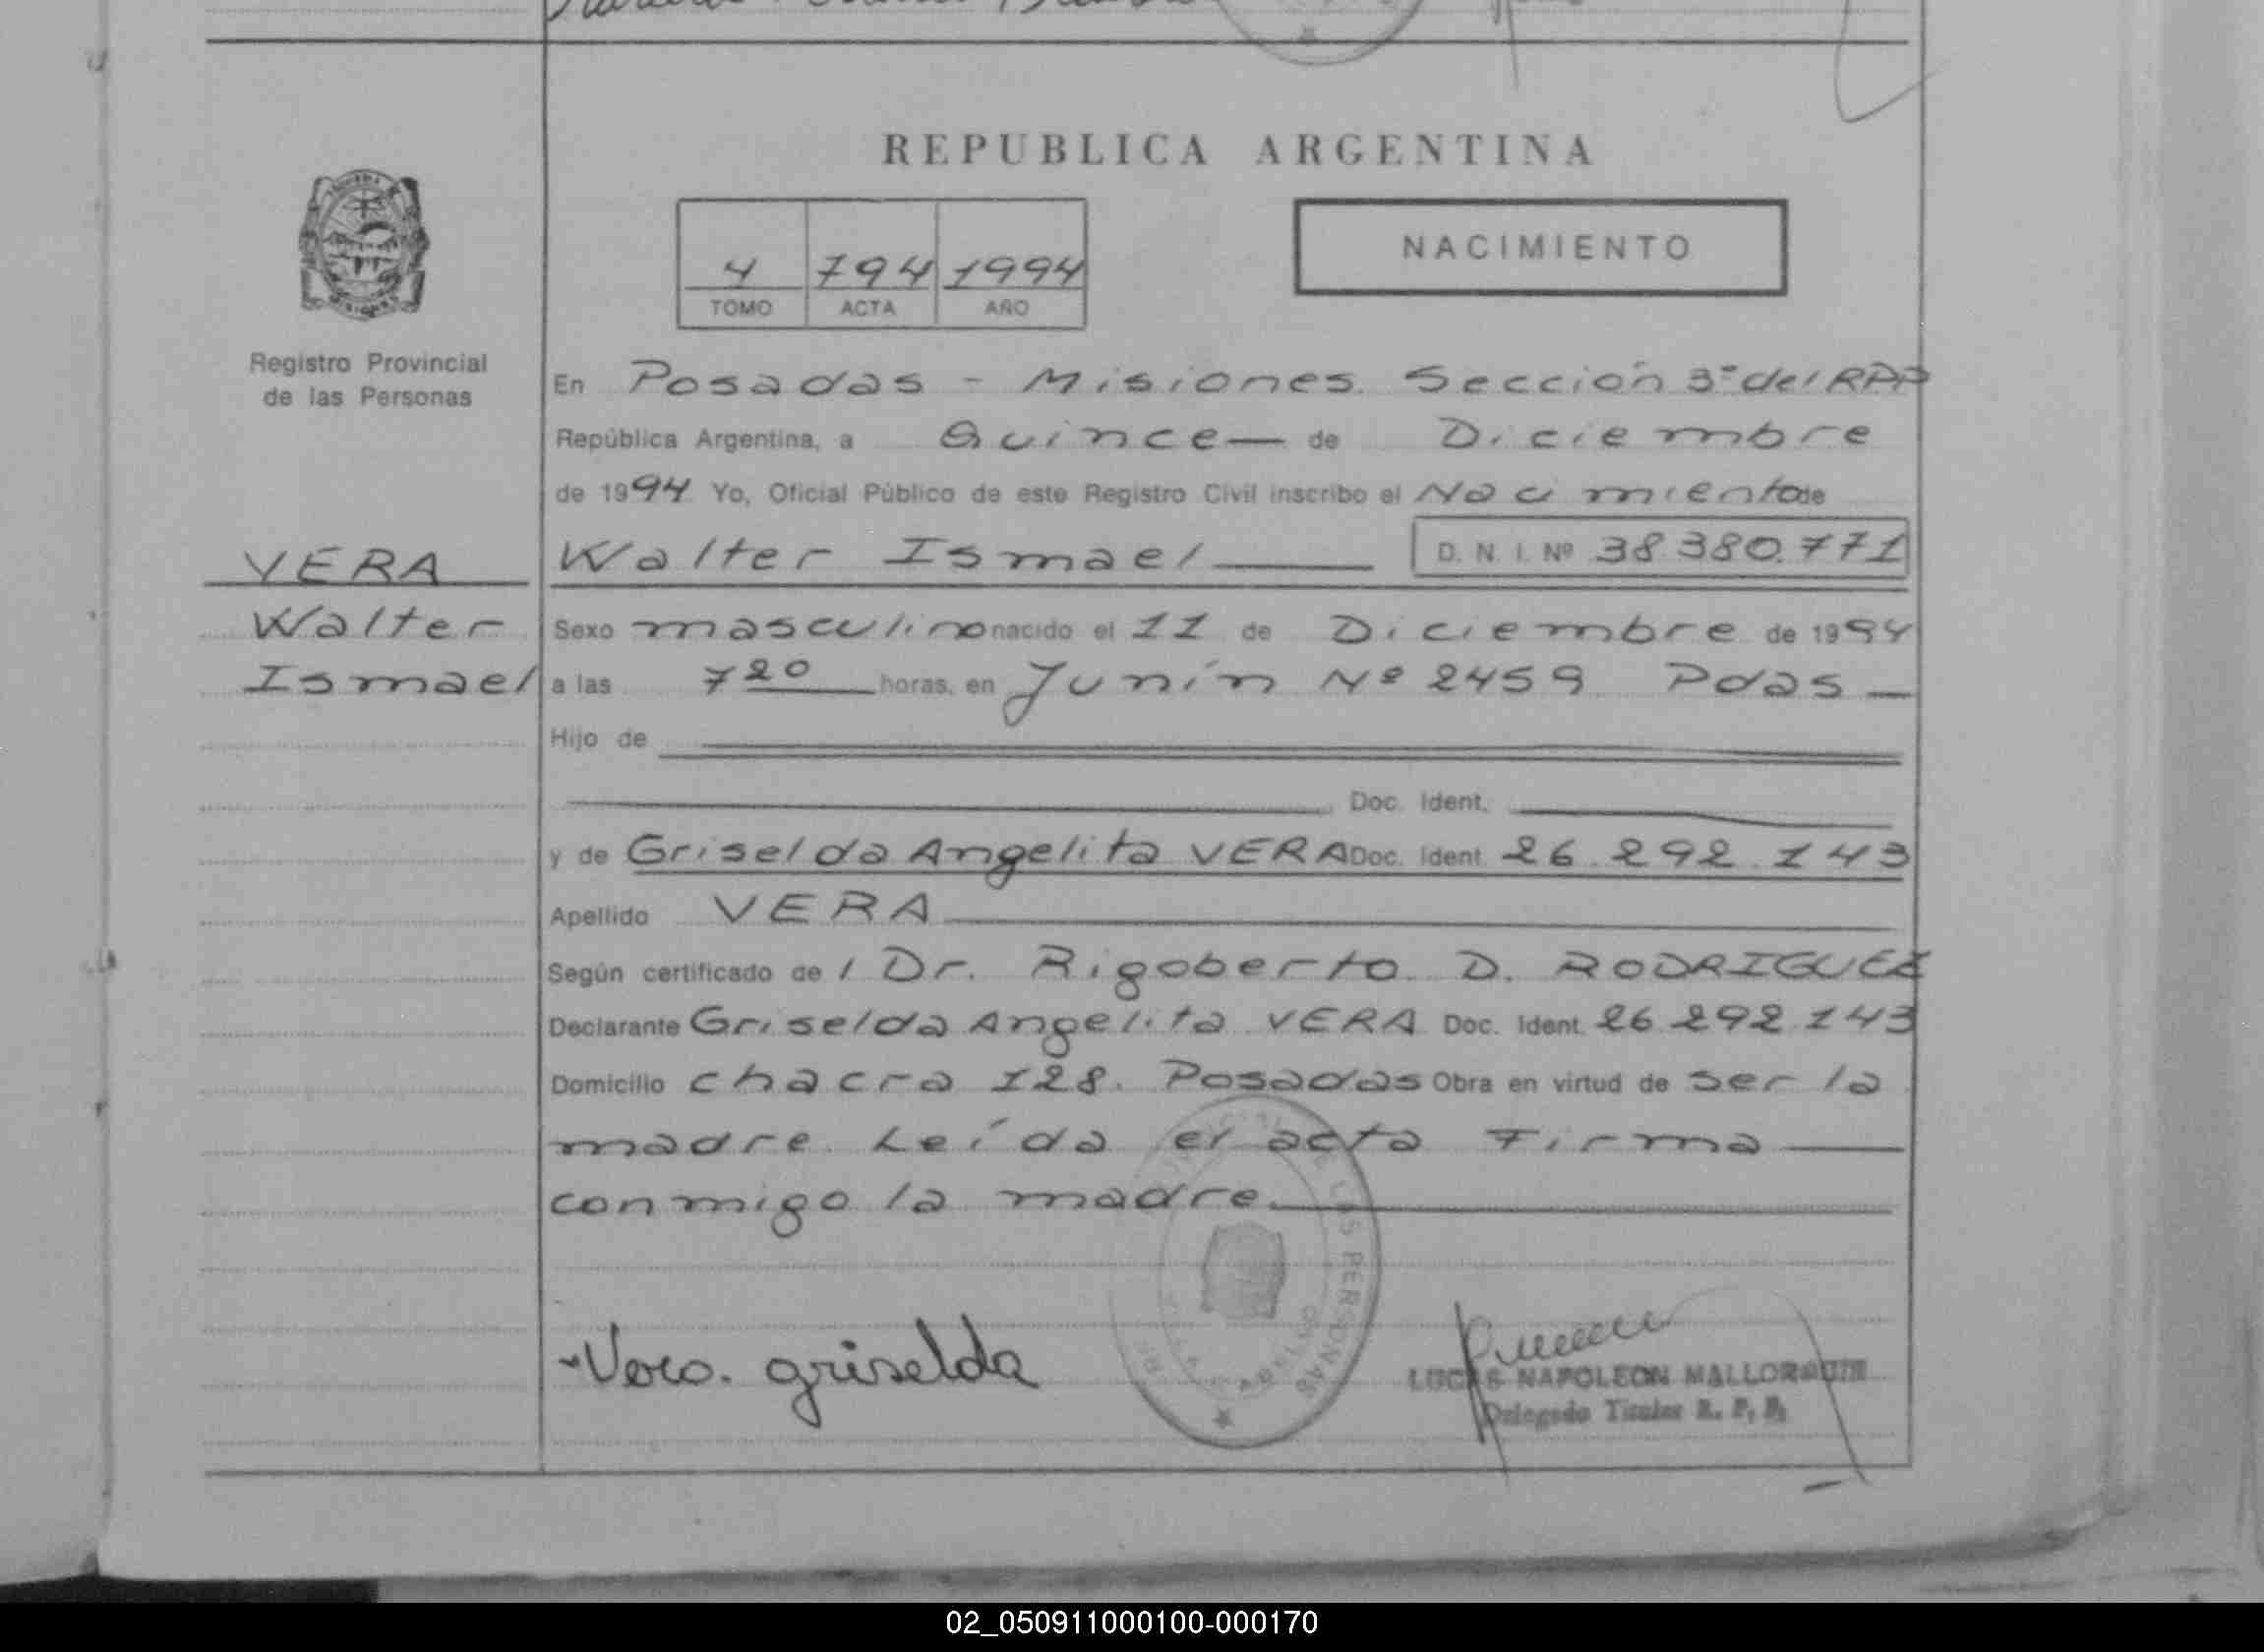 REPUBLICA ARGENTINA
NACIMIENTO
4 794 1994
TOMO ACTA AÑO
Registro Provincial
de las Personas
En Posadas - Misiones. Sección 3ª del RPP
República Argentina, a Quince — de Diciembre
de 1994 Yo, Oficial Público de este Registro Civil inscribo el Nacimiento de
VERA
Walter Ismael D. N. I. Nº 38.380.771
Walter
Ismael
Sexo masculino nacido el 11 de Diciembre de 1994
a las 7 20 horas, en Junín Nº 2459 Pdas —
Hijo de
Doc. Ident.
y de Griselda Angelita VERA Doc. Ident. 26.292.143
Apellido VERA
Según certificado de l Dr. Rigoberto D. RODRIGUEZ
Declarante Griselda Angelita VERA Doc. Ident. 26.292.143
Domicilio chacra 128. Posadas Obra en virtud de ser la
madre. Leída el acta Firma
conmigo la madre.
LAS PERSONAS
Vera. griselda
LUCAS NAPOLEON MALLORQUIN
Delegado Titular R. P. P.
02_050911000100-000170